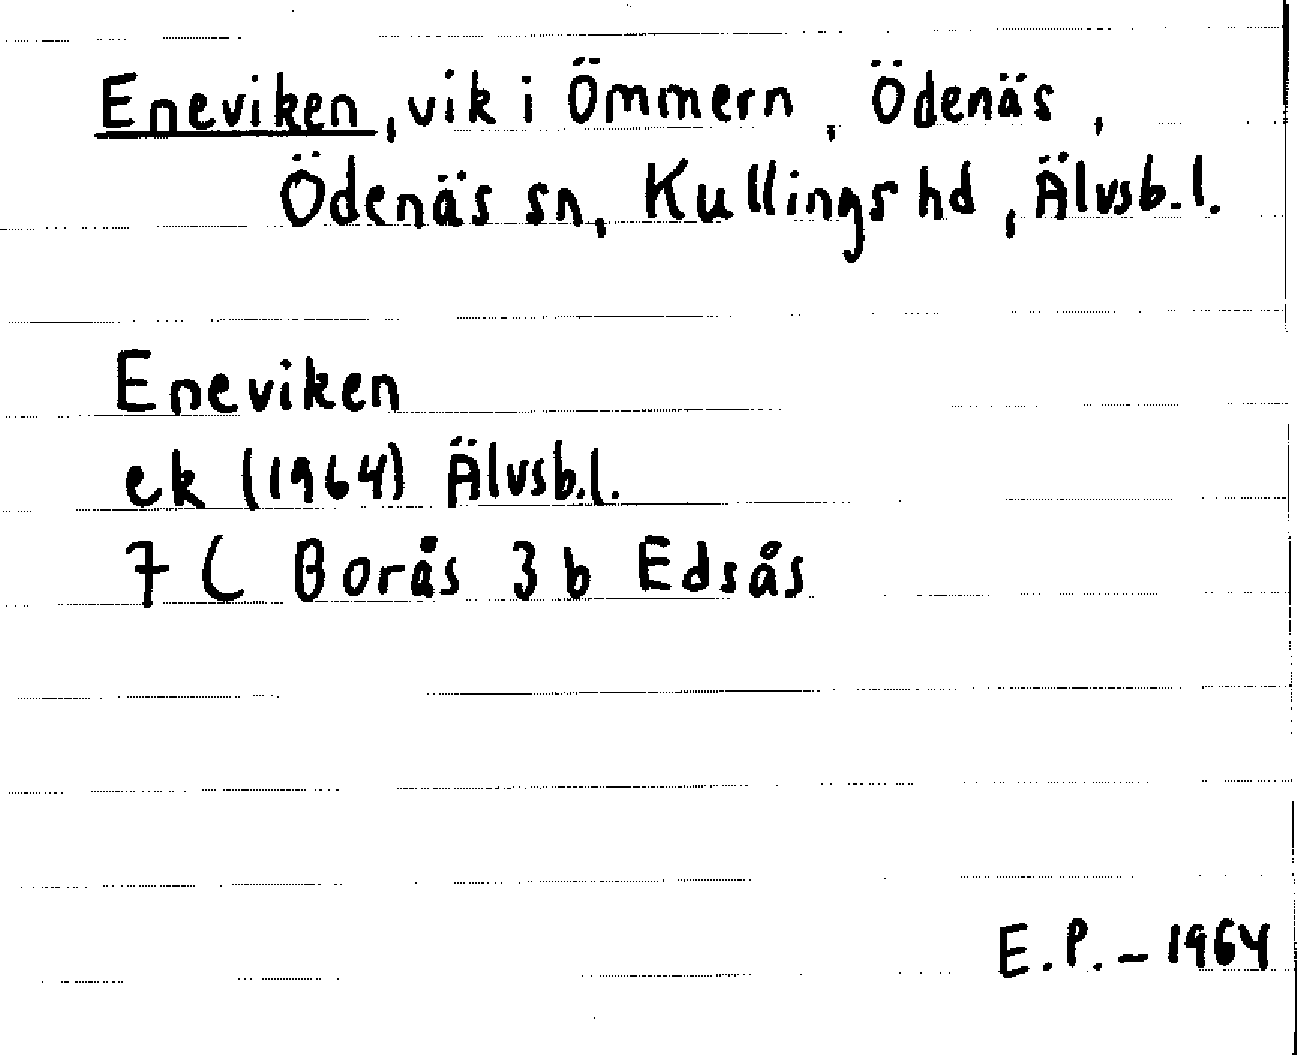 Eneviken, vik i Ömmern, Ödenäs,
Ödenäs sn, Kullings hd, Älvsb.l.
Eneviken
ek (1964) Älvsb.l.
7 C Borås 3 b Edsås
E.P. – 1964